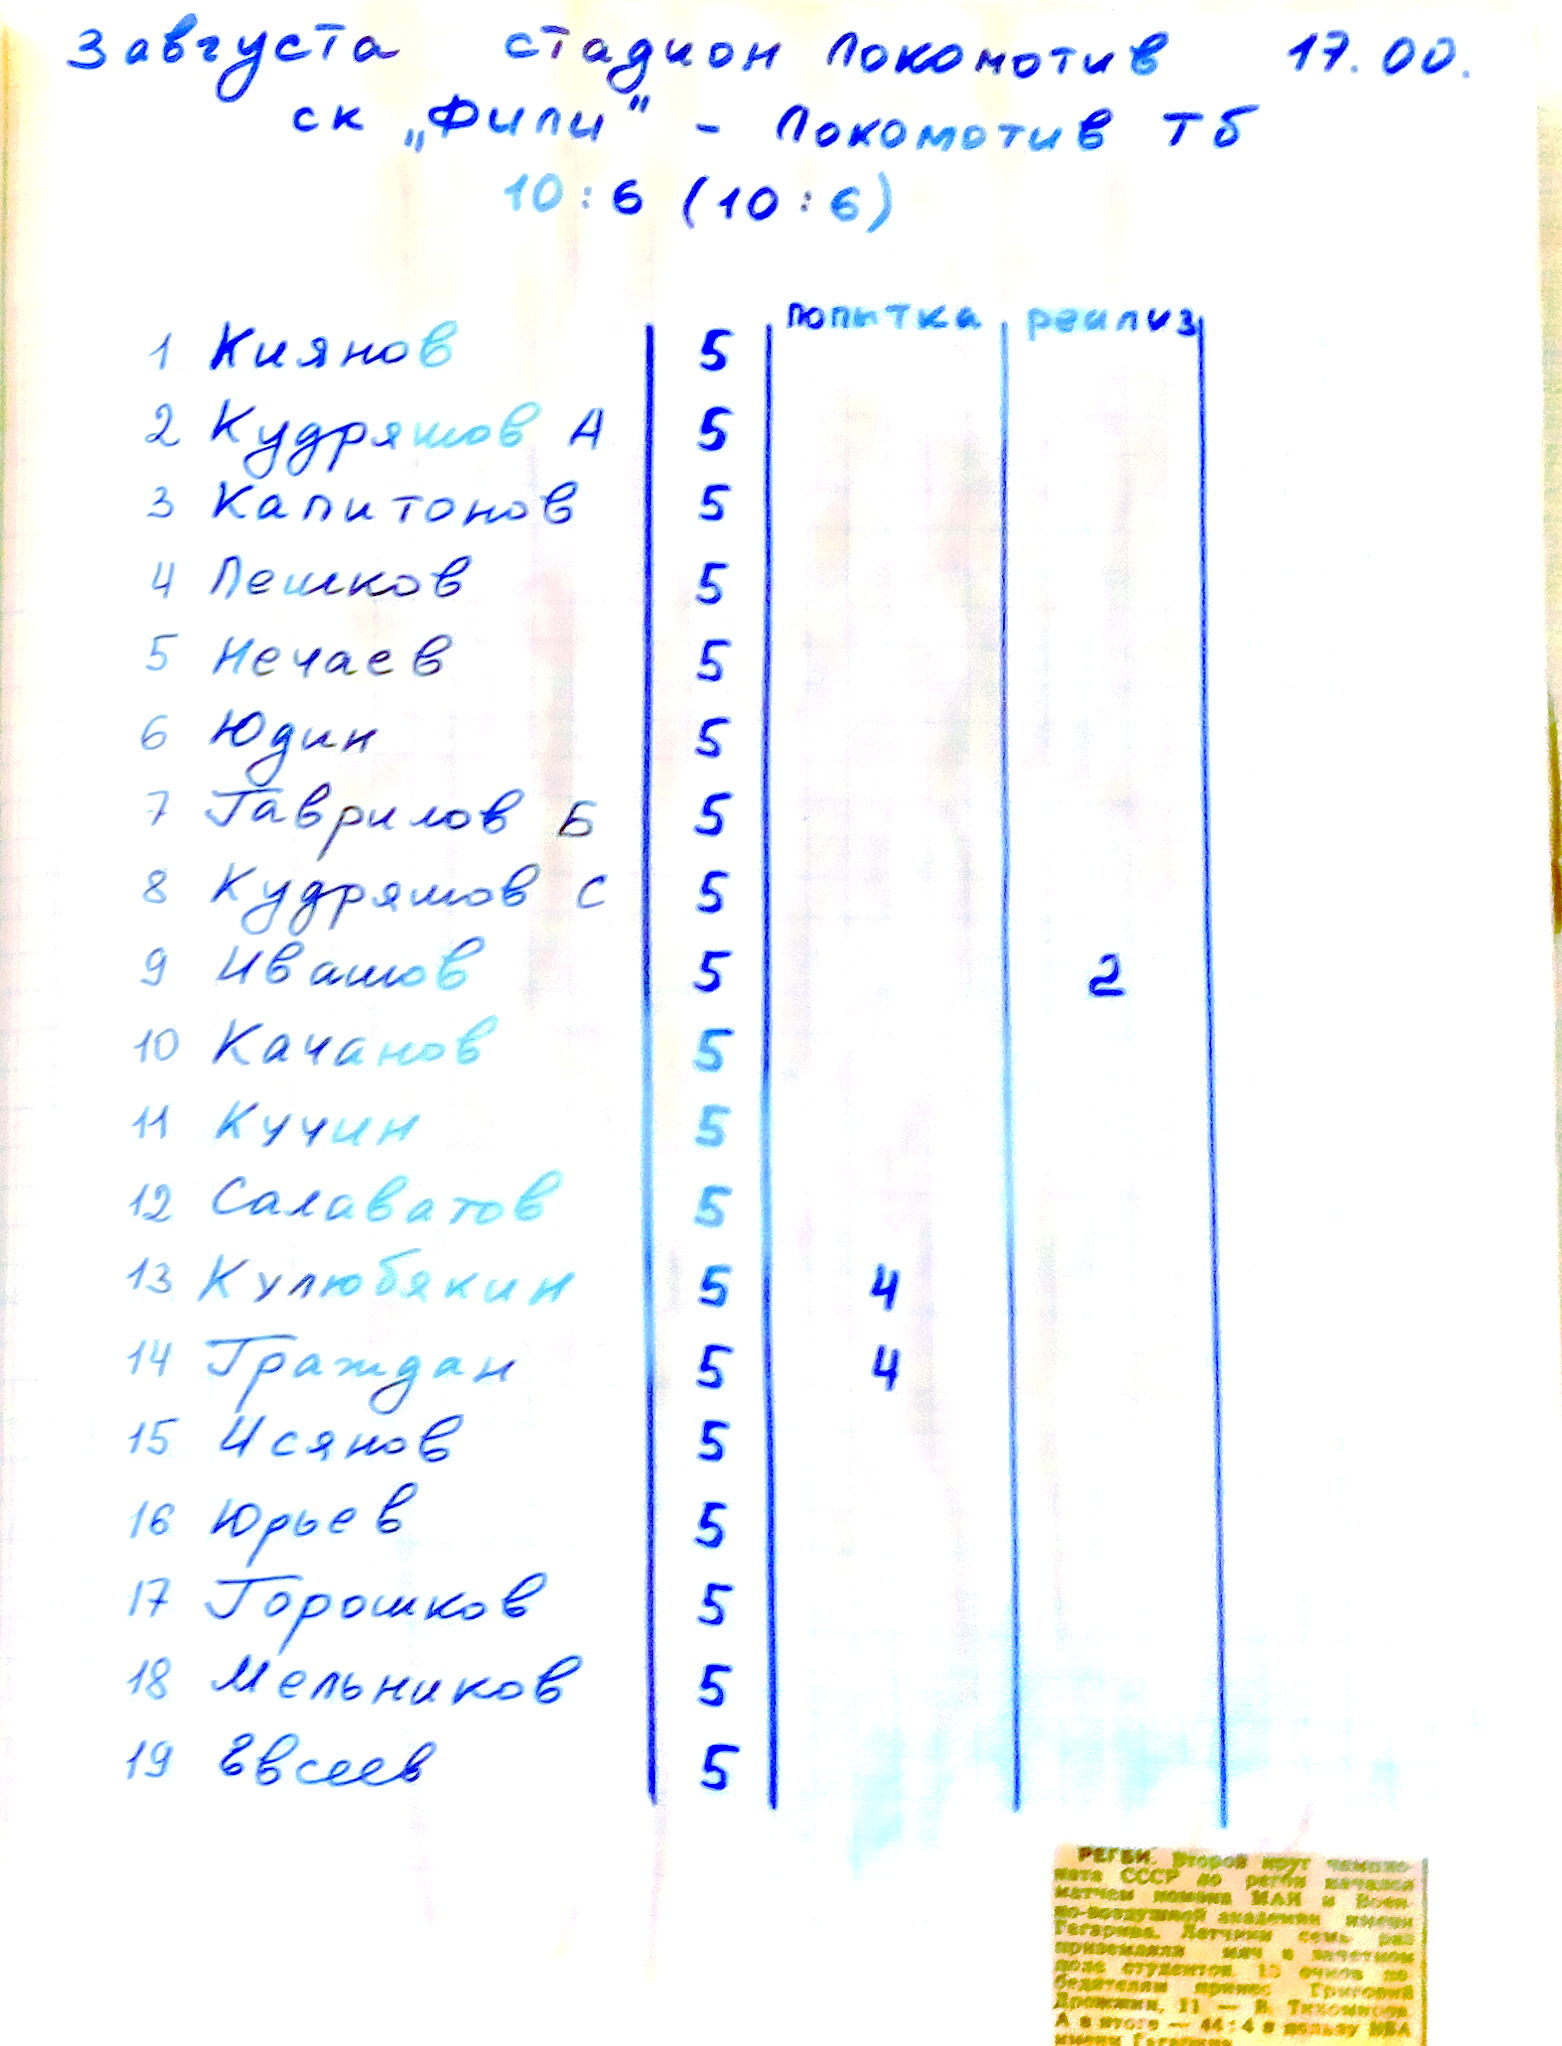 3 августа стадион Локомотив 17.00.
ск „Фили" - Локомотив Тб
10:6 (10:6)
попытка реализ
1 Киянов 5
2 Кудряшов А 5
3 Капитонов 5
4 Пешков 5
5 Нечаев 5
6 Юдин 5
7 Гаврилов Б 5
8 Кудряшов С 5
9 Ивашов 5 2
10 Качанов 5
11 Кучин 5
12 Салаватов 5
13 Кулюбякин 5 4
14 Граждан 5 4
15 Исянов 5
16 Юрьев 5
17 Горошков 5
18 Мельников 5
19 Евсеев 5
РЕГБИ. Второй круг чемпио-
ната СССР по регби начался
матчем команд МАИ и Воен-
но-воздушной академии имени
Гагарина. Летчики семь раз
приземляли мяч в зачетном
поле студентов. 15 очков по-
бедителям принес Григорий
11 — В. Тихомиров.
А в итоге — 44:4 в пользу ВВА
имени Гагарина.